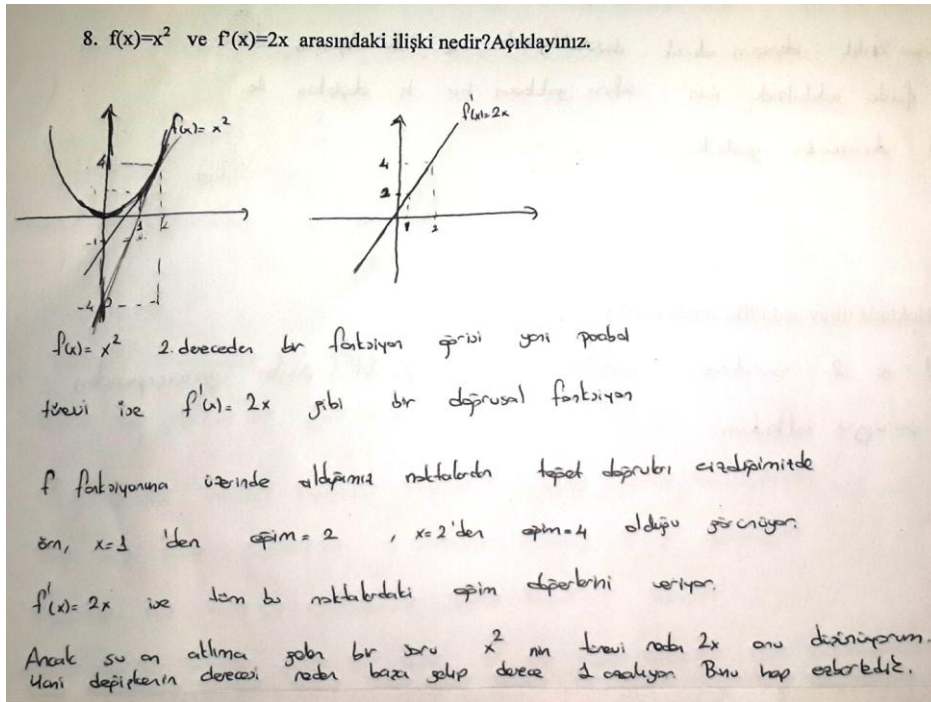 8. f(x)=x² ve f'(x)=2x arasındaki ilişki nedir?Açıklayınız.
f(x)= x²
f'(x)=2x
4
4
2
1
2
1
2
-1
-4
f(x)= x² 2. dereceden bir fonksiyon eğrisi yani parabol
türevi ise f'(x)= 2x gibi bir doğrusal fonksiyon
f fonksiyonuna üzerinde aldığımız noktalardan teğet doğruları çizdiğimizde
örn, x=1 'den eğim = 2 , x=2'den eğim=4 olduğu görünüyor.
f'(x)= 2x ise tüm bu noktalardaki eğim değerlerini veriyor.
Ancak şu an aklıma gelen bir soru x² nin türevi neden 2x onu düşünüyorum.
Yani değişkenin derecesi neden başa gelip derece 1 azalıyor. Bunu hep ezberledik.